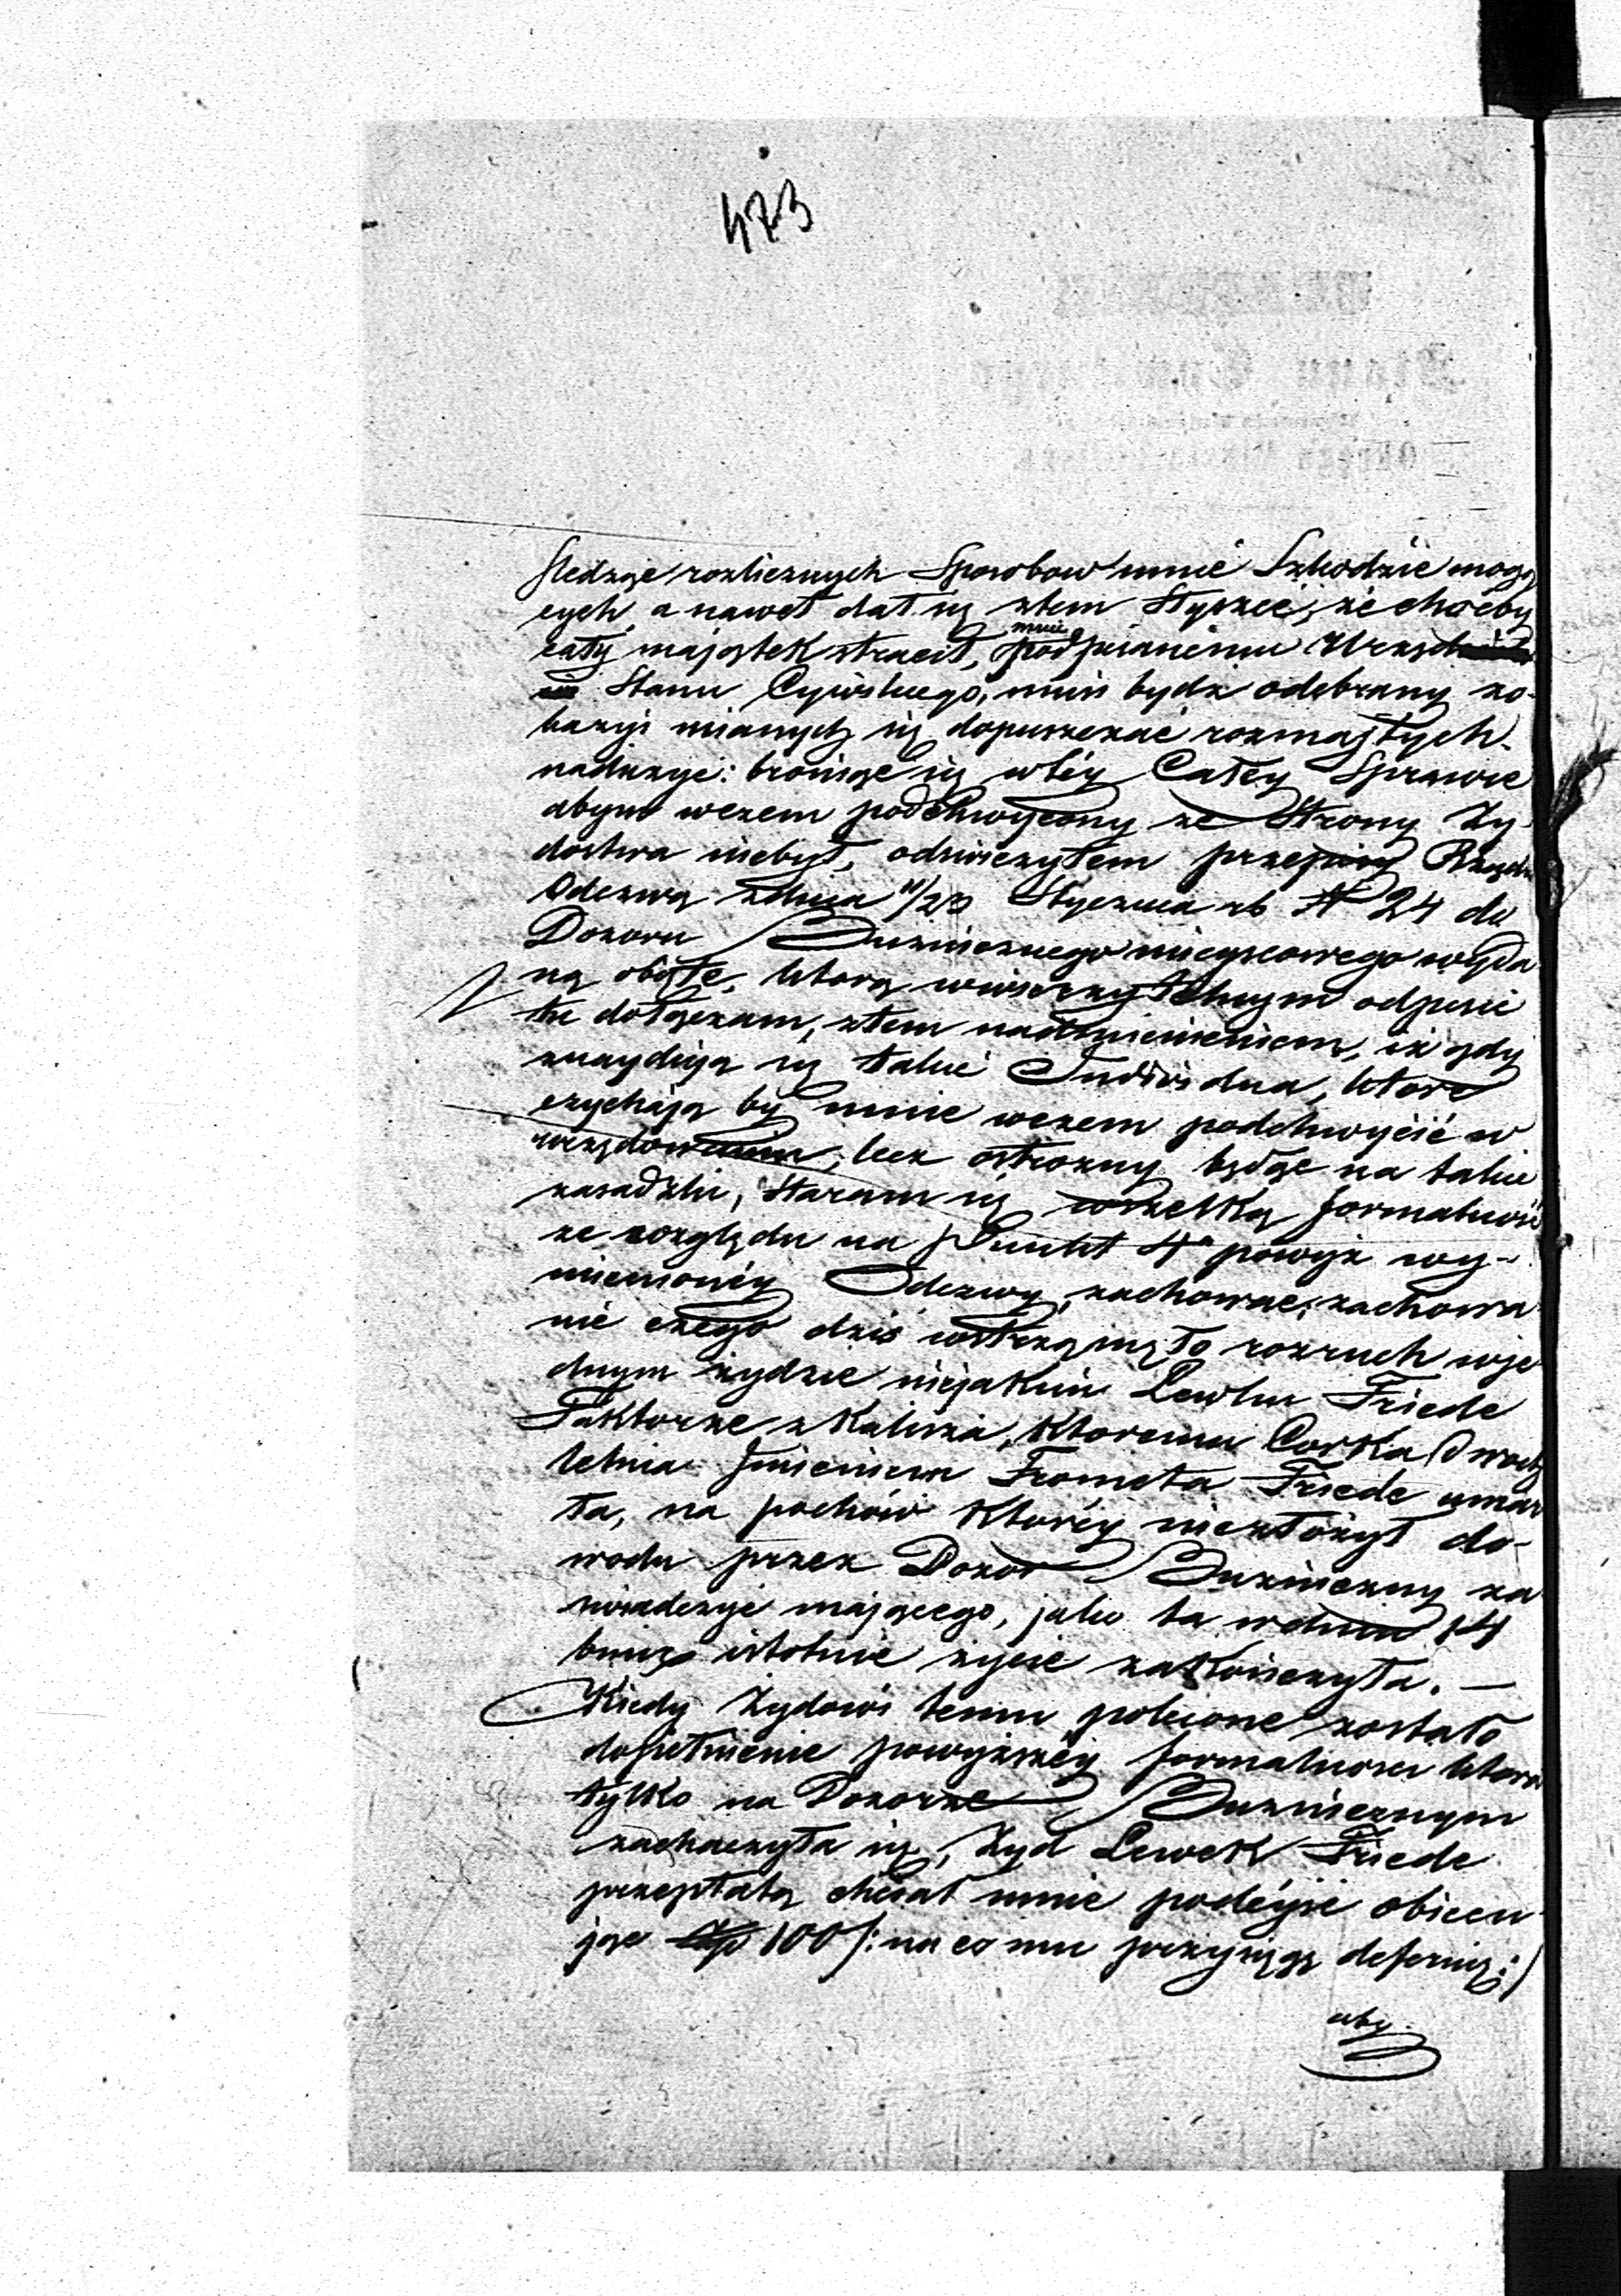 473
śledząc rozlicznych Sposobow mnie Szkodzić mogą
cych, a nawet dał się ztem Słyszeć, że choćby
cały majątek stracił, mnie podpisanemu Urzęd
Stanu Cywilnego, musi bydz odebrany zo
bazyi mianych się dopuszczać rozmajtych
nadużyć: broniąc się wtéy Całey Sprawie
abym wczem podchwycony ze Strony Ży
dostwa niebył, odświeżyłem przepisy Rządu
Odezwą zdnia 11/23 Stycznia rb N 24 do
Dozoru Bużnicznego mieyscowego wyda
ną objęte, ktorą wwierzytelnym odpisie
tu dołączam, ztem nadmienieniem, iż gdy
znaydują się takie Individua, ktore
czychają by mnie wczem podchwycić w
urzędowaniu, lecz ostrożny będąc na takie
zasadzki, staram się wszelką formalność
ze względu na Punkt 4n powyż wy-
mienionéy Odezwy, zachować, zachowa
nie czego dziś wstrząsnęło rozruch wje
dnym żydzie niejakim Lewku Friede
Faktorze z Kalisza, ktoremu Corka Dwoch
letnia Jmieniem Frometa Friede umar
ła, na pochów ktoréy niezłożył do-
wodu przez Dozor Bużniczny za
świadczyć mającego, jako ta wdniu 14
bm istotnie życie zakończyła. —
Kiedy Żydowi temu polecone zostało
dopełnienie powyższéy formalności ktora
tylko na Dozorze Bużnicznym
zachaczyła się, Żyd Lewek Friede
przepłatą chciał mnie podéyść obiecu
jąc 100 /: na co mu przysięgę deferuię :/
aby